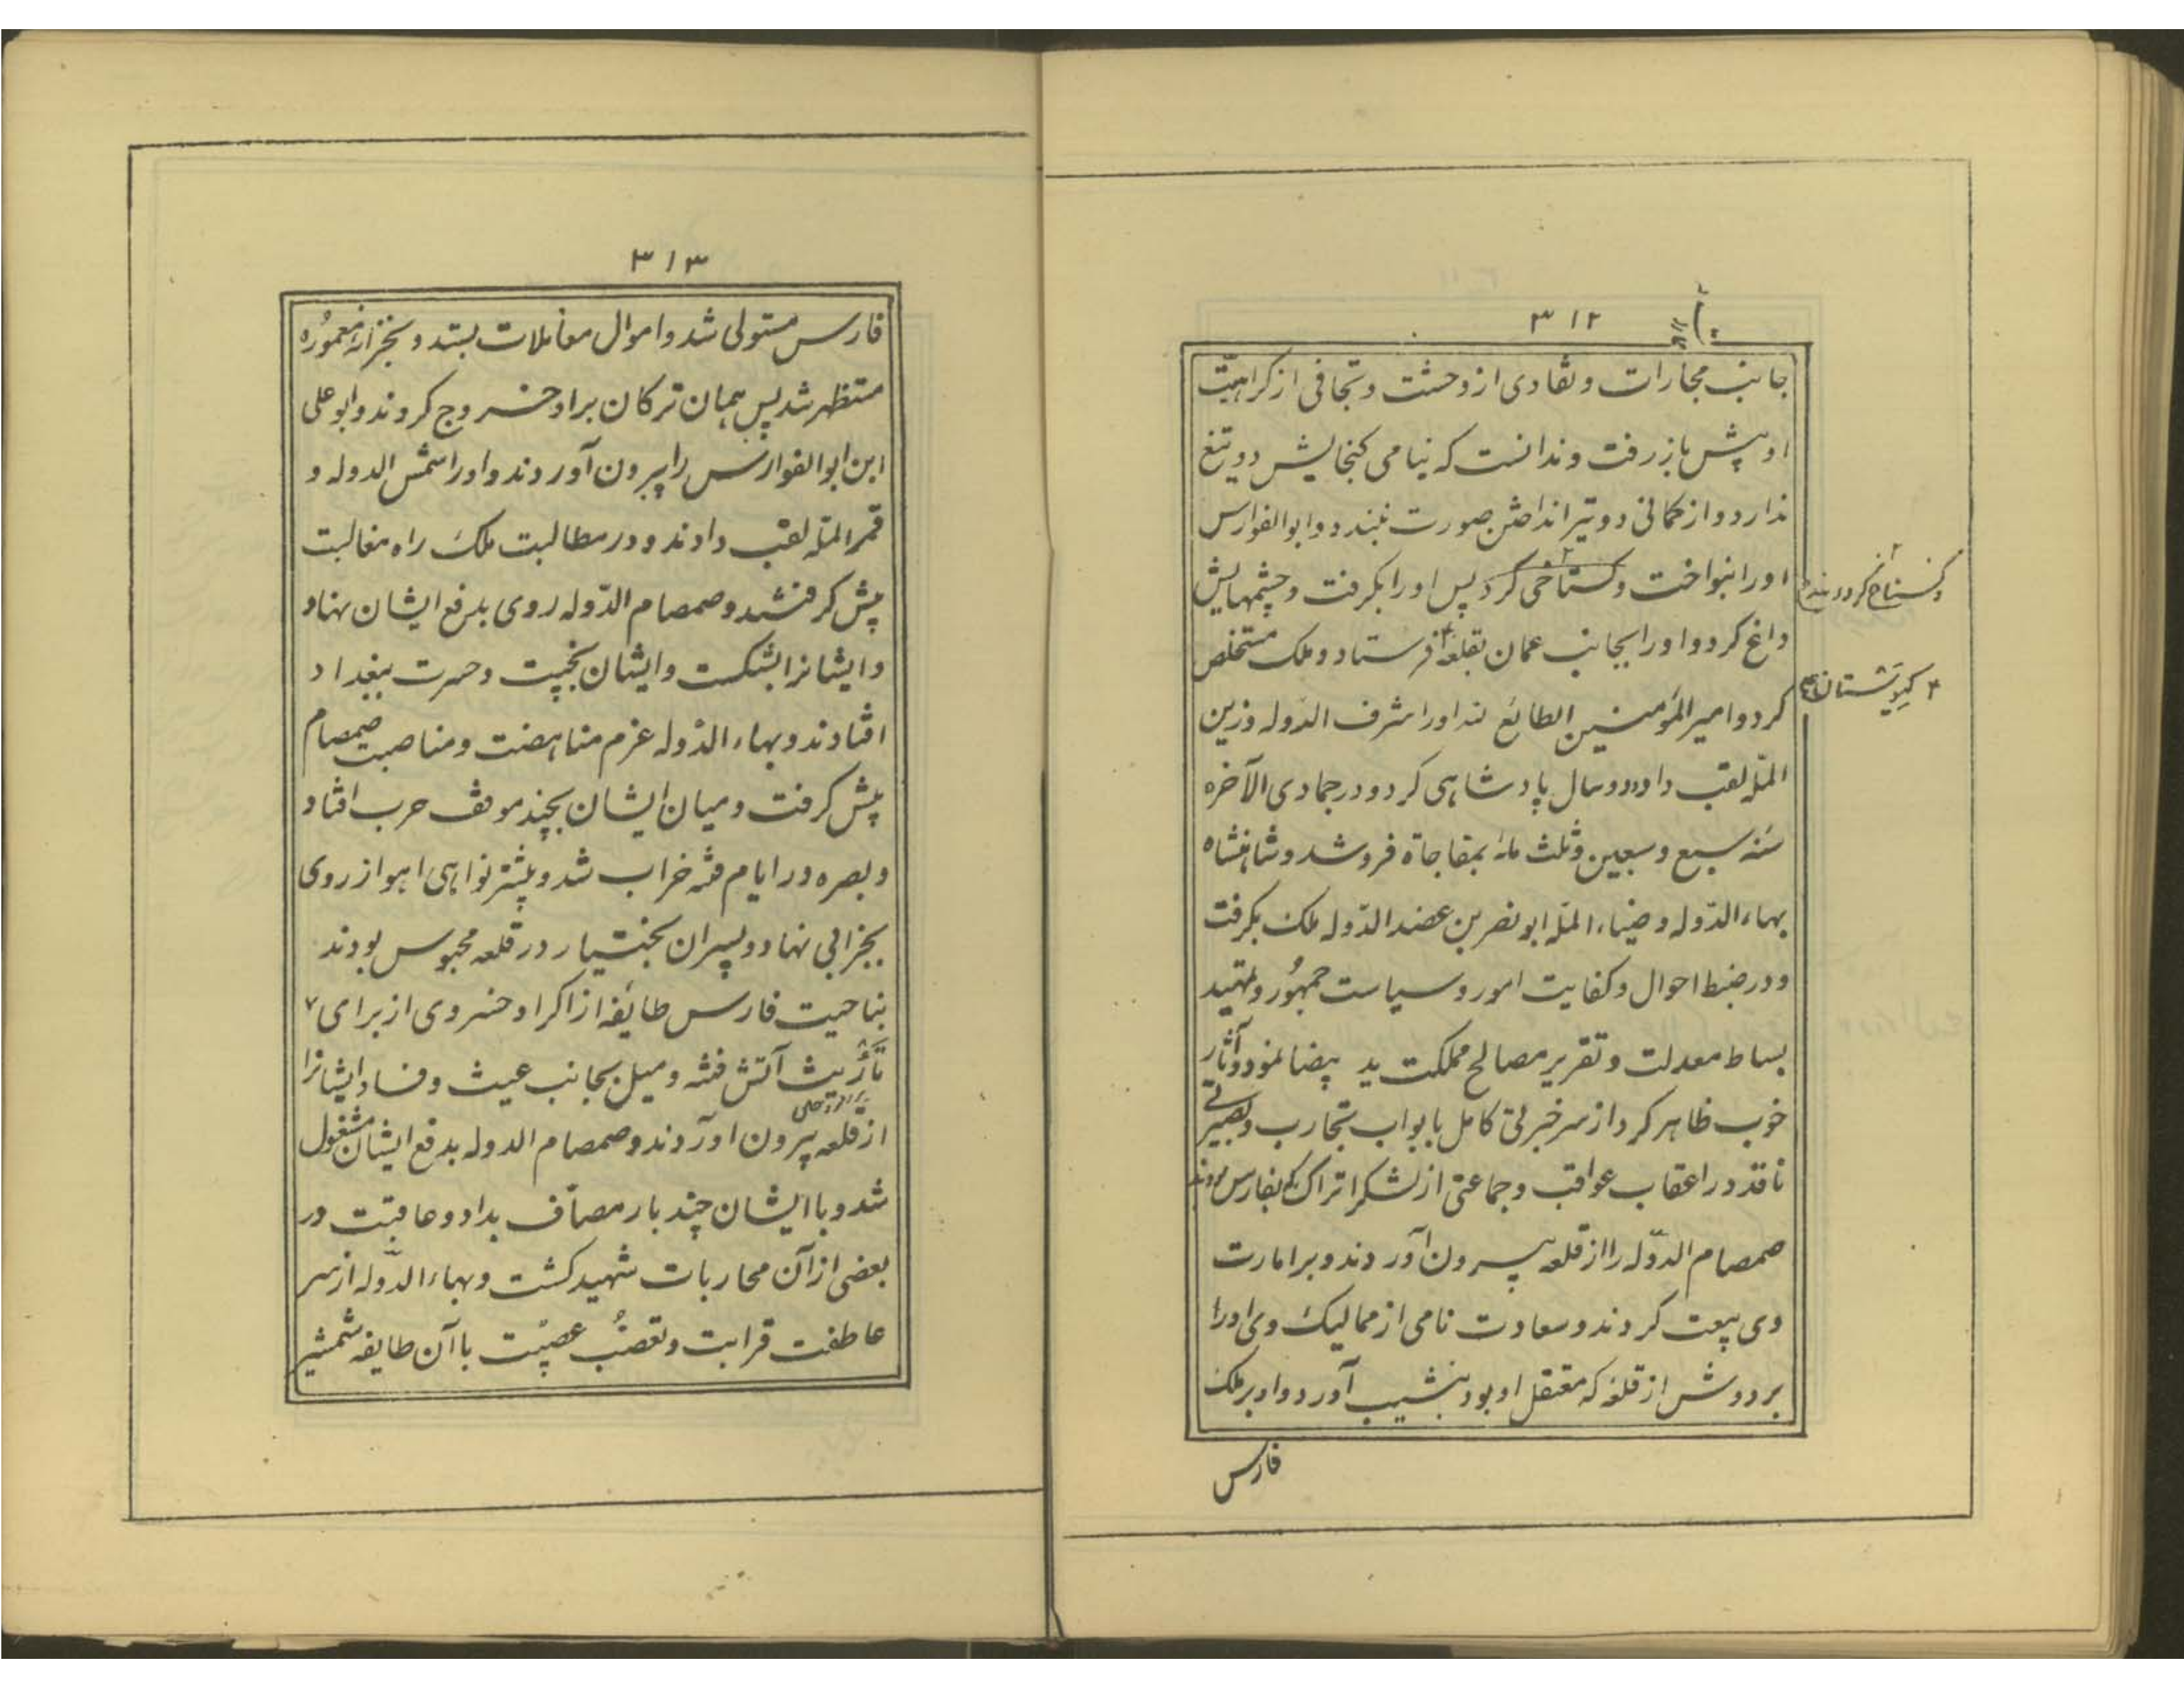 ۳۱۲
جانب مجارات و تفادی از وحشت و تجافی از کراهیت
او پیش باز رفت و ندانست که نیامی کنجایش دو تیغ
ندارد و از کمانی دو تیر انداختن صورت نبندد و ابوالفوارس
او را بنواخت و کستاخی کرد پس او را بکرفت و چشمهایش
و کستاخ کردانید
داغ کرد و او را بجانب عمان بقلعهٔ فرستاد و ملک مستخلص
کرد و امیر المؤمنین الطائع لله او را شرف الدوله و زین
المله لقب داد و دو سال پادشاهی کرد و در جمادی الآخره
سنه سبع و سبعین و ثلث مائه بمفاجاة فرو شد و شاهنشاه
بهاء الدوله و ضیاء المله ابو نصر بن عضد الدوله ملک بکرفت
و در ضبط احوال و کفایت امور و سیاست جمهور و تمهید
بساط معدلت و تقریر مصالح مملکت ید بیضا نمود و آثار
خوب ظاهر کرد از سر خبرتی کامل بابواب تجارب و بصیرتی
ناقد در اعقاب عواقب و جماعتی از لشکر اتراک که بفارس بودند
صمصام الدوله را از قلعه بیرون آوردند و بر امارت
وی بیعت کردند و سعادت نامی از ممالیک وی او را
بر دوش از قلعه که معتقل او بود بنشیب آورد و او بر ملک
فارس
۳۱۳
فارس مستولی شد و اموال معاملات بستد و بخزانهٔ معموره
مستظهر شد پس همان ترکان بر او خروج کردند و ابو علی
ابن ابو الفوارس را بیرون آوردند و او را شمس الدوله و
قمر المله لقب دادند و در مطالبت ملک راه مغالبت
پیش کرفتند و صمصام الدوله روی بدفع ایشان نهاد
و ایشانرا بشکست و ایشان بخیبت و حسرت ببغداد
افتادند و بهاء الدوله عزم مناهضت و مناصبت صمصام
پیش کرفت و میان ایشان بچند موقف حرب افتاد
و بصره در ایام فتنه خراب شد و بیشتر نواهی اهواز روی
بخرابی نهاد و پسران بختیار در قلعه محبوس بودند
بناحیت فارس طائفه از اکراد خسروی از برای
تأریث آتش فتنه و میل بجانب عیث و فساد ایشانرا
از قلعه بیرون اوردند و صمصام الدوله بدفع ایشان مشغول
شد و با ایشان چند بار مصاف بداد و عاقبت در
بعضی از آن محاربات شهید کشت و بهاء الدوله از سر
عاطفت قرابت و تعصب عصبیت با آن طایفه شمشیر